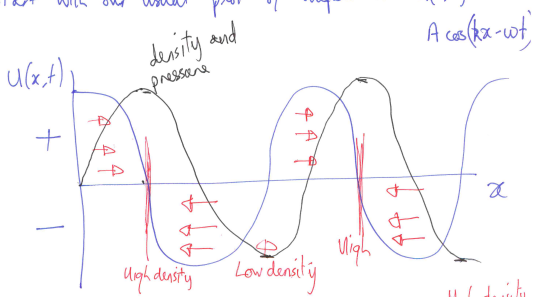 with our usual
A cos(kx-ωt)
density and
pressure
U(x,t)
+
x
-
High density
Low density
High